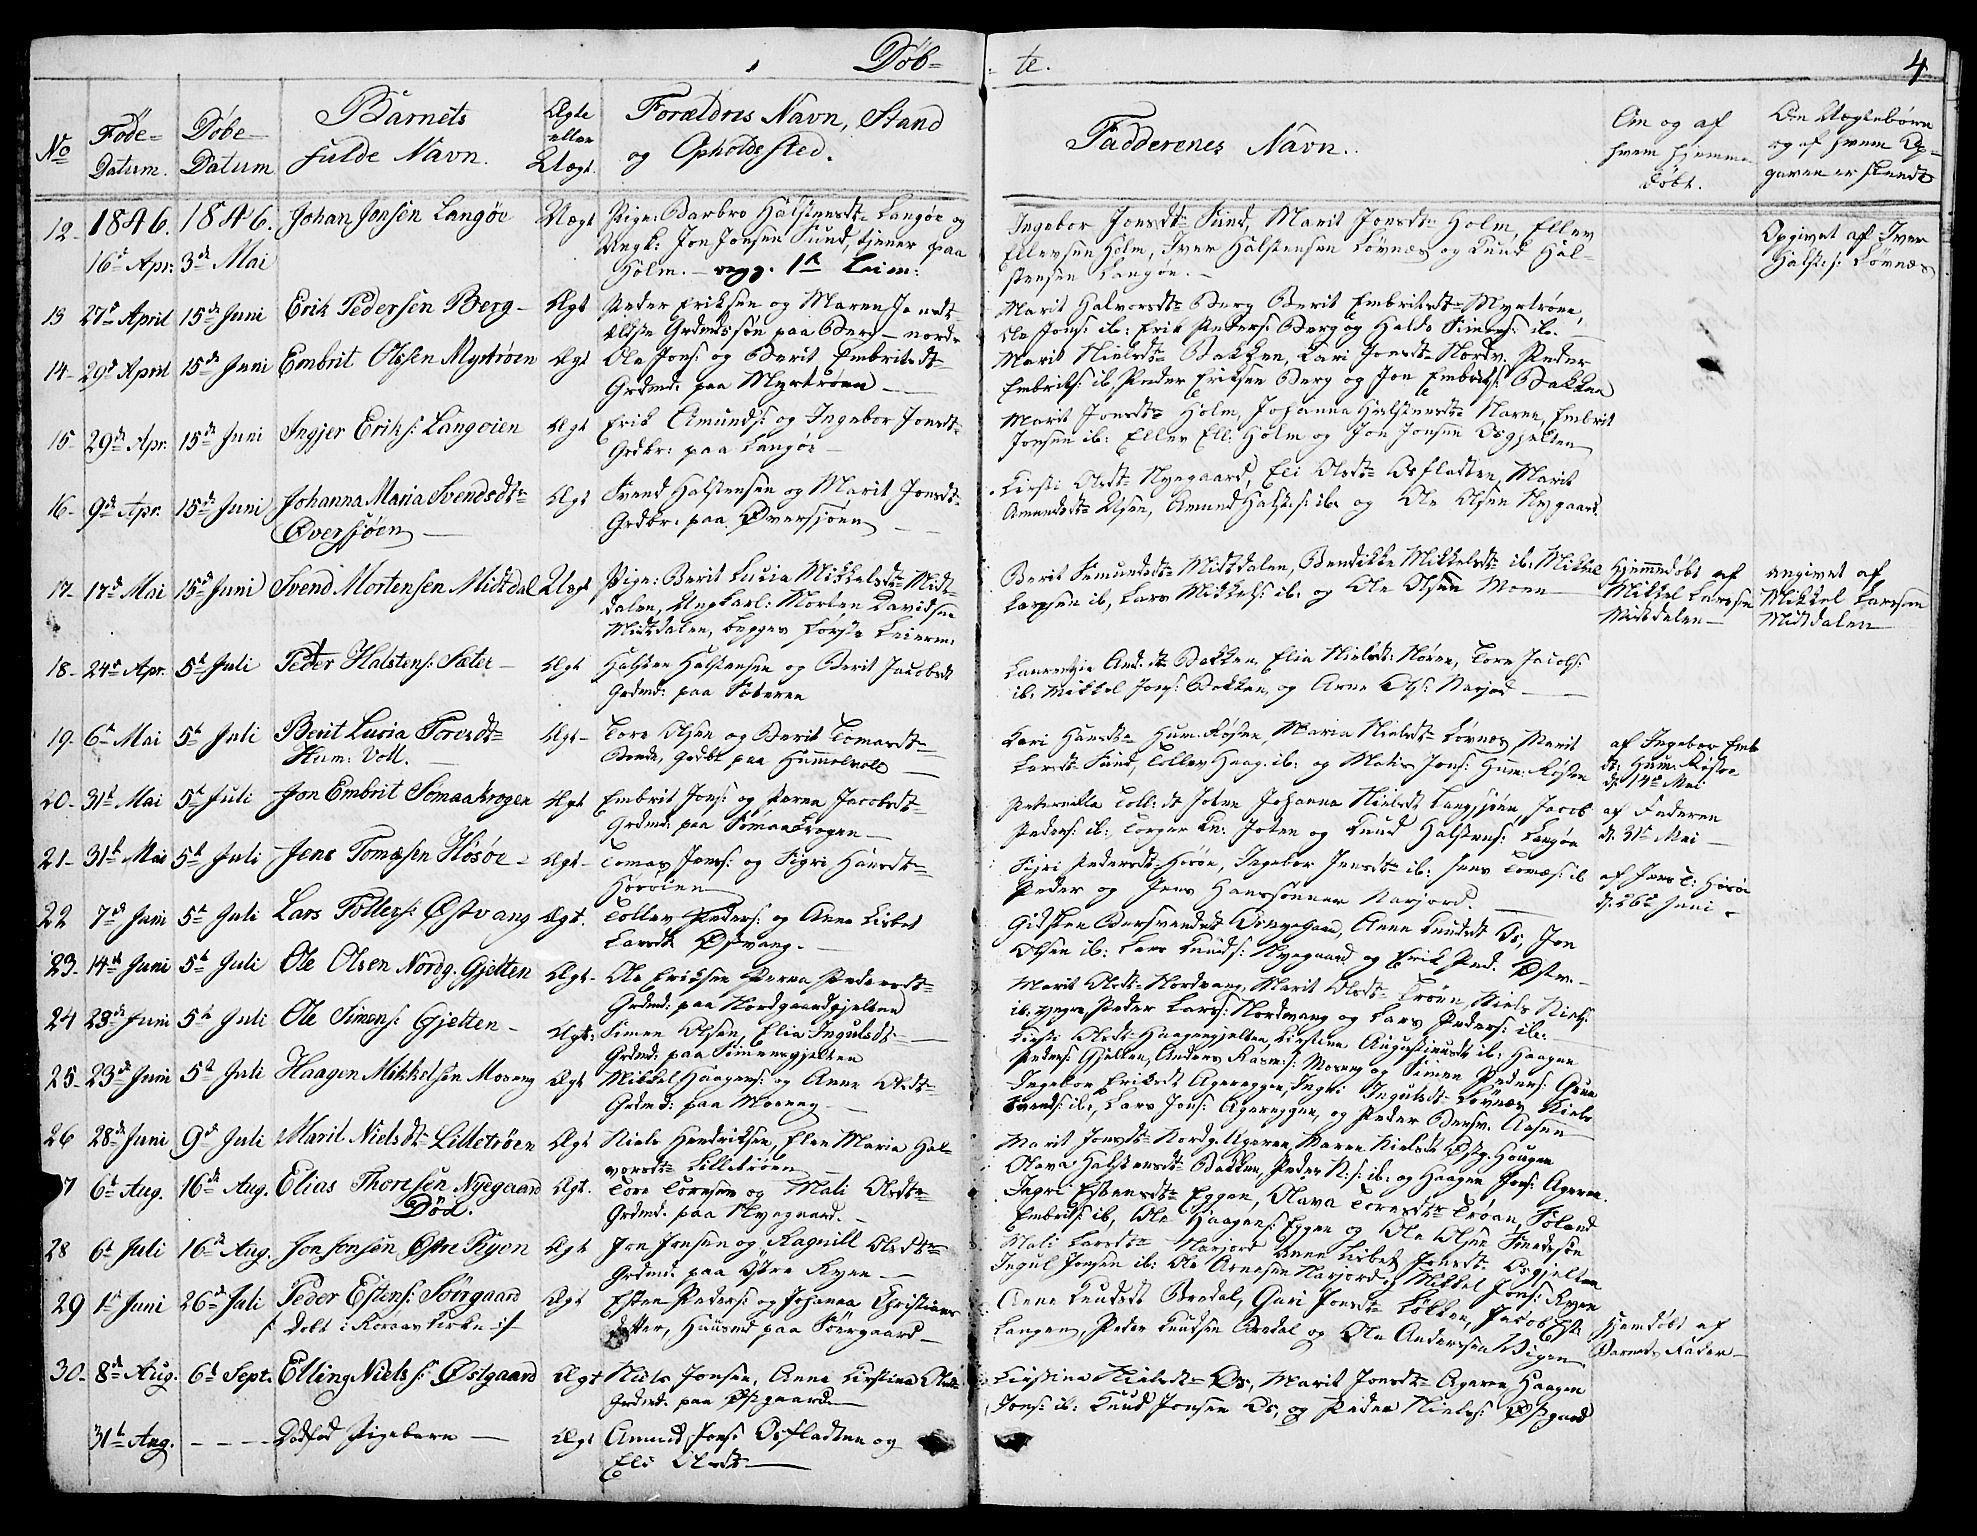 Döb-
te.
4
No
Föde-
Datum.
Döbe-
Datum
Barnets
fulde Navn.
Ægte
eller
Uægt.
Forældres Navn, Stand
og Opholdssted.
Faddernes Navn.
Om og af
hvem hjemme
döbt.
Om Uægtebörn
og af hvem Op-
gaven er skeedt
12- 1846. 1846. Johan Jonsen Langöe Uægt Pige: Barbro Halstensdtr Langöe og
16de Apr: 3de Mai Ungk: Jon Jonsen Sund, tjener paa
Holm. - begg. 1te Leierm:
Ingebor Jonsdtr Sund, Marit Jonsdtr Holm, Ellev
Ellevsen Holm, Iver Halstensen Lövnæs og Knud Hal-
stensen Langöe.
Opgivet af Iver
Halsts: Lövnæs
13 27de April 15de Juni Erik Pedersen Berg- Ægt Peder Eriksen og Maren Jonsdtr
Grdmdssön paa Berg nordr
Marit Halvorsdtr Berg Berit Embritsdtr Myrtröen,
Ole Jons: ib: Erik Peders: Berg og Halds Simens: ib.
14- 29de April 15de Juni Embrit Olssen Myrtröen Ægt Ole Jons: og Berit Embritsdtr
Grdmd: paa Myrtröen
Marit Nielsdtr Bakken, Kari Jonsdtr Nordv. Peder
Embrits: ib, Peder Eriksen Berg og Jon Embrits: Bakken
15- 29de Apr. 15de Juni Ingjer Eriks: Langöien Ægt Erik Amunds: og Ingebor Jonsdtr
Grdbr: paa Langöe
Marit Jonsdtr Holm, Johanna Halstensdtr Narve, Embrit
Jonsen ib: Ellev Ell: Holm og Jon Jonsen Osgjelten
16- 9de Apr. 15de Juni Johanna Maria Svendsdtr Ægt Svend Halstensen og Marit Jonsdtr
Översjöen Grdbr: paa Översjöen
Kirsti Olsdtr Nyegaard, Eli Olsdtr Osfladten, Marit
Amundsdtr Utsen, Amund Halsts: ib. og Ole Olsen Nygaard.
17- 17de Mai 15de Juni Svend Mortensen Midtdal Uægt Pige: Berit Lucia Mikkelsdtr Midt-
dalen, Ungkarl: Morten Davidsen
Midtdalen, begges förste Leierm:
Berit Simundsdtr Midtdalen, Bendikke Mikkelsdtr ib: Mikkel
Larssen ib, Lars Mikkels: ib: og Ole Olsen Moen
Hjemmedöbt af
Mikkel Larssen
Midtdalen
angivet af
Mikkel Larssen
Midtdalen
18- 24de Apr. 5te Juli Peder Halstens: Sæter Ægt Halsten Halstensen og Berit Jacobsdtr
Grdmd: paa Söteren
Laurentzie And:dtr Bakken, Elia Nielsdtr Nören, Tore Jacobs:
ib: Mikkel Jons: Bakken, og Arne Ols: Narjord
19- 6te Mai 5te Juli Berit Lucia Toresdtr Ægt- Tore Olsen og Berit Tomasdtr
Hum: Voll. Bonde, Grdbr paa Hummelvold
Kari Hansdtr Hum: Röste, Maria Nielsdtr Lövnæs, Marit
Larsdtr Sund, Tollev Haag. ib: og Mats Jons: Hum: Rösten
af Ingebor Emb
dtr Hum: Rösten
d: 14de Mai
20- 31te Mai 5te Juli Jon Embrit Sömaakrogen Ægt Embrit Jons: og Perna Jacobsdtr
Grdmd: paa Sömaakrogen
Petronilla Toll:dtr Joten Johanna Nielsdtr Langsjöen Jacob
Peders: ib: Torger Kn: Joten og Knud Halstens: Langöe
af Faderen
d: 31te Mai
21- 31te Mai 5te Juli Jens Tomæsen Hösöe Ægt- Tomas Jens: og Sigri Hansdtr
Hösöien
Sigri Pedersdtr Hösöe, Ingebor Jensdtr ib: Jens Tomæs: ib
Peder og Jens Hanssönner Narjord.
af Jens T: Hösöe
d: 26de Juni
22 7de Juni 5te Juli Lars Tollefs: Östvang Ægt. Tollev Peders: og Anne Lisbet
Larsdtr Östvang.
Olsen ib: Lars Knuds: Nyegaard og Erik Ped. Östv.
23- 14de Juni 5te Juli Ole Olsen Nordg. Gjelten Ægt- Ole Eriksen Perna Pedersdtr
Grdmd: paa Nordgaardgjelten
Marit Olsdtr Nordvang, Marit Olsdtr Tröen, Niels Niels:
ib. yngre, Peder Lars: Nordvang og Lars Peders: ib.
24 23de Juni 5te Juli Ole Simens: Gjelten- Ægt: Simen Olsen, Elia Ingulsdtr
Grdmd: paa Simensgjelten
Kirsti Olsdtr Haagengjelten, Kirstine Augustinusdtr ib: Haagen
Peders: Gjelten, Anders Rasm:s: Moseng og Simen Peders:
25- 23de Juni 5te Juli Haagen Mikkelsen Moseng Ægt Mikkel Haagens: og Anne Olsdtr
Grdmd: paa Moseng
Ingebor Eriksdtr Ageneggen, Ingri Ingulsdtr Lövnæs Niels
Svends: ib:, Lars Jons: Ageneggen, og Peder Bersv. Aasen
26 28de Juni 9de Juli Marit Nielsdtr Lilletröen Ægt Niels Hendriksen, Elen Maria Hal-
vorsdtr Lilletröen
Marit Jonsdtr Nordg. Ageren Maren Nielsdtr Östg. Hougen
Olava Halstensdtr Bakken, Peder N.s: ib: og Haagen Jons: Ageren.
7 6te Aug. 16de Aug. Elias Thoresen Nyegaard Ægt. Tore Toresen og Mali Olsdtr
Död. Grdmd: paa Nyegaard.
Ingri Estensdtr Eggen, Olava Toresdtr Tröen,
Embrits: ib, Ole Haagens: Eggen og Ole Olsen
28 6te Juli 16de Aug. Jon Jonsen Östre Ryen Ægt Jon Jonsen og Ragnill Olsdtr
Grdmd: paa Östre Ryen
Mali Larsdtr Narjord Anne Lisbet Jonsdtr Osgjelten
Ingul Jonsen ib: Ole Arnesen Narjord og Mikkel Jons: Ryen
29 1te Juni 26de Juli Peder Estens: Sörgaard Ægt Esten Peders: og Johanna Christians
Döbt i Röraas Kirke datter, Huusmd paa Sörgaard
Anne Knudsdtr Bredal, Guri Jonsdtr Lökken, Jacob
Langen, Peder Knudsen Bredal og Ole Anderssen Vigen
Hjemdöbt af
Barnets Fader
30- 8de Aug. 6te Sept. Elling Niels s: Östgaard Ægt Niels Jonsen, Anne Kirstine Ols
Grdmd. paa Östgaard
Kirstine Nielsdtr Os, Marit Jonsdtr Ageren Haagen
Jons: ib: Knud Jonsen Os, og Peder Niels: Östgaard
31te Aug. - - - - Dödföd Pigebarn Ægt Amund Jons: Osfladten og
Eli Olsdtr